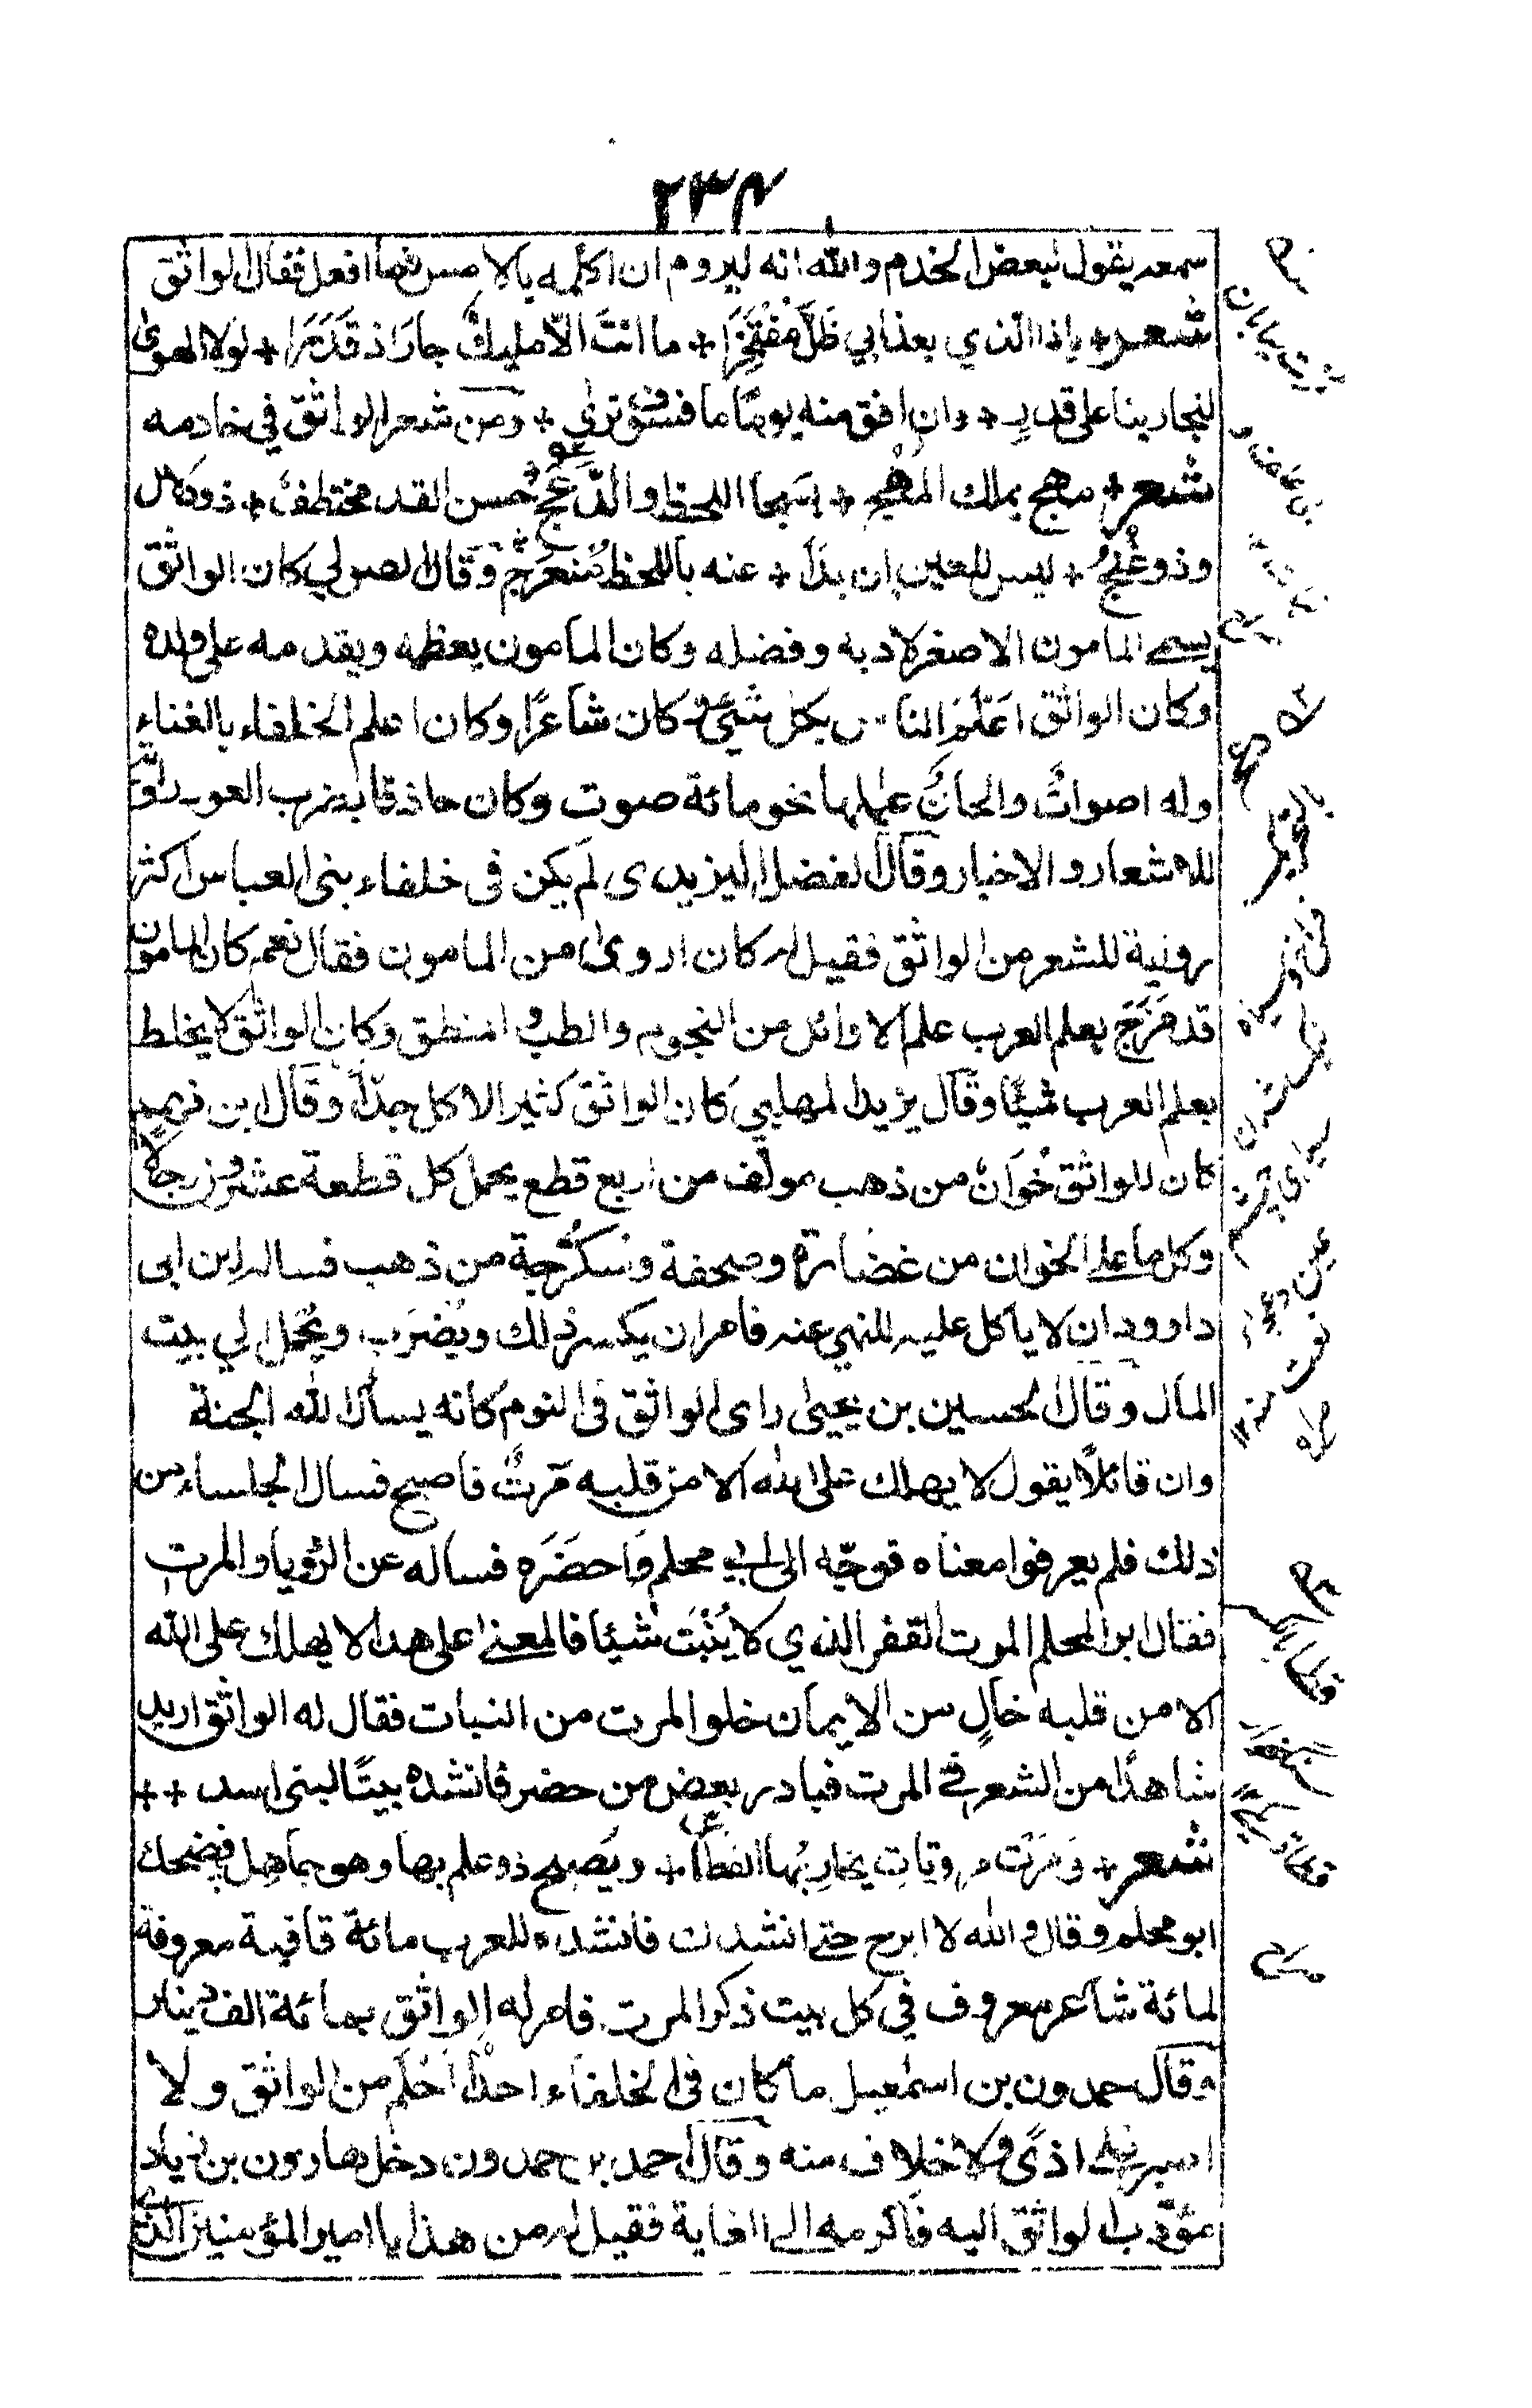 ٢٣٤
سمعه يقول لبعض الخدم والله انه ليروم ان اكلمه بالامس فما افعل فقال الواثق
شعر + ياذا الذي بعذابي ظَلَّ مُفْتَخِرًا + ما انتَ الّا مليكٌ جارَ اذ قَدَرَا + لولا الهوى
لتجارينا على قدر + وان افق منه يومًا ما فسوف ترى + ومن شعر الواثق في خادمه
شعر + مهج يملك المُهَج + بسجا اللحظ والدَّعَج حسن القد مختطف + ذو دلال
وذو غُنُج + ليس للعين ان بدَا + عنه باللحظ مُنعَرَج وقال الصولي كان الواثق
يسمى المامون الاصغر لادبه وفضله وكان المامون يعظمه ويقدمه على ولده
وكان الواثق اعْلَمَ الناس بكل شيئ و كان شاعرًا وكان اعلم الخلفاء بالغناء
وله اصواتٌ والحانٌ عملها نحو مائة صوت وكان حاذقا بضرب العود راوية
للاشعار والاخبار وقال الفضل اليزيدى لم يكن فى خلفاء بنى العباس اكثر
رونية للشعر من الواثق فقيل له كان اروى من المامون فقال نعم كان المامون
قد مَزَجَ بعلم العرب علم الاوائل من النجوم والطب و المنطق وكان الواثق لا يخلط
بعلم العرب شيئًا وقال يزيد المهلبي كان الواثق كثير الاكل جدًّا وقال ابن فهم
كان للواثق خُوَانٌ من ذهب مولّف من اربع قطع يحمل كل قطعة عشرون رجالا
وكل ما على الخوان من غضارة وصحفة وسُكرّجة من ذهب فساله ابن ابى
داوود ان لا ياكل عليه للنهي عنه فامر ان يكسر ذلك ويُضرَب ويُحْمَل لي بيت
المال وقال الحسين بن يحيى راى الواثق فى النوم كانه يسأل الله الجنة
وان قائلًا يقول لا يهلك على الله الا من قلبه مَرتٌ فاصبح فسال الجلساء من
ذلك فلم يعرفوا معناه فوجّه الى ابي محلم فاحضَرَه فساله عن الرؤيا والمرت
فقال ابو المحلم المرت القفر الذي لا يُنْبَت شيئا فالمعنى على هذا لا يهلك على الله
الا من قلبه خالٍ من الايمان خلو المرت من النبات فقال له الواثق اريد
شاهدًا من الشعر في المرت فبادر بعض من حضر فانشده بيتًا لبنى اسد ++
شعر + وَمَرْت مروتاتِ يحارِ بُها القطا + ويَصبح ذو علم بها وهو جاهل فضحك
ابو محلم وقال والله لا ابرح حتى انشدت فانشده للعرب مائة قافية معروفة
لمائة شاعر معروف في كل بيت ذكر المرت فامر له الواثق بمائة الف دينار
وقال حمدون بن اسمعيل ما كان فى الخلفاء احدٌ احْلَم من الواثق ولا
اصبر على اذًى ولا خلاف منه وقال احمد بن حمدون دخل هارون بن زياد
مؤدب الواثق اليه فاكرمه الى الغاية فقيل له من هذا يا امير المؤمنين الذي